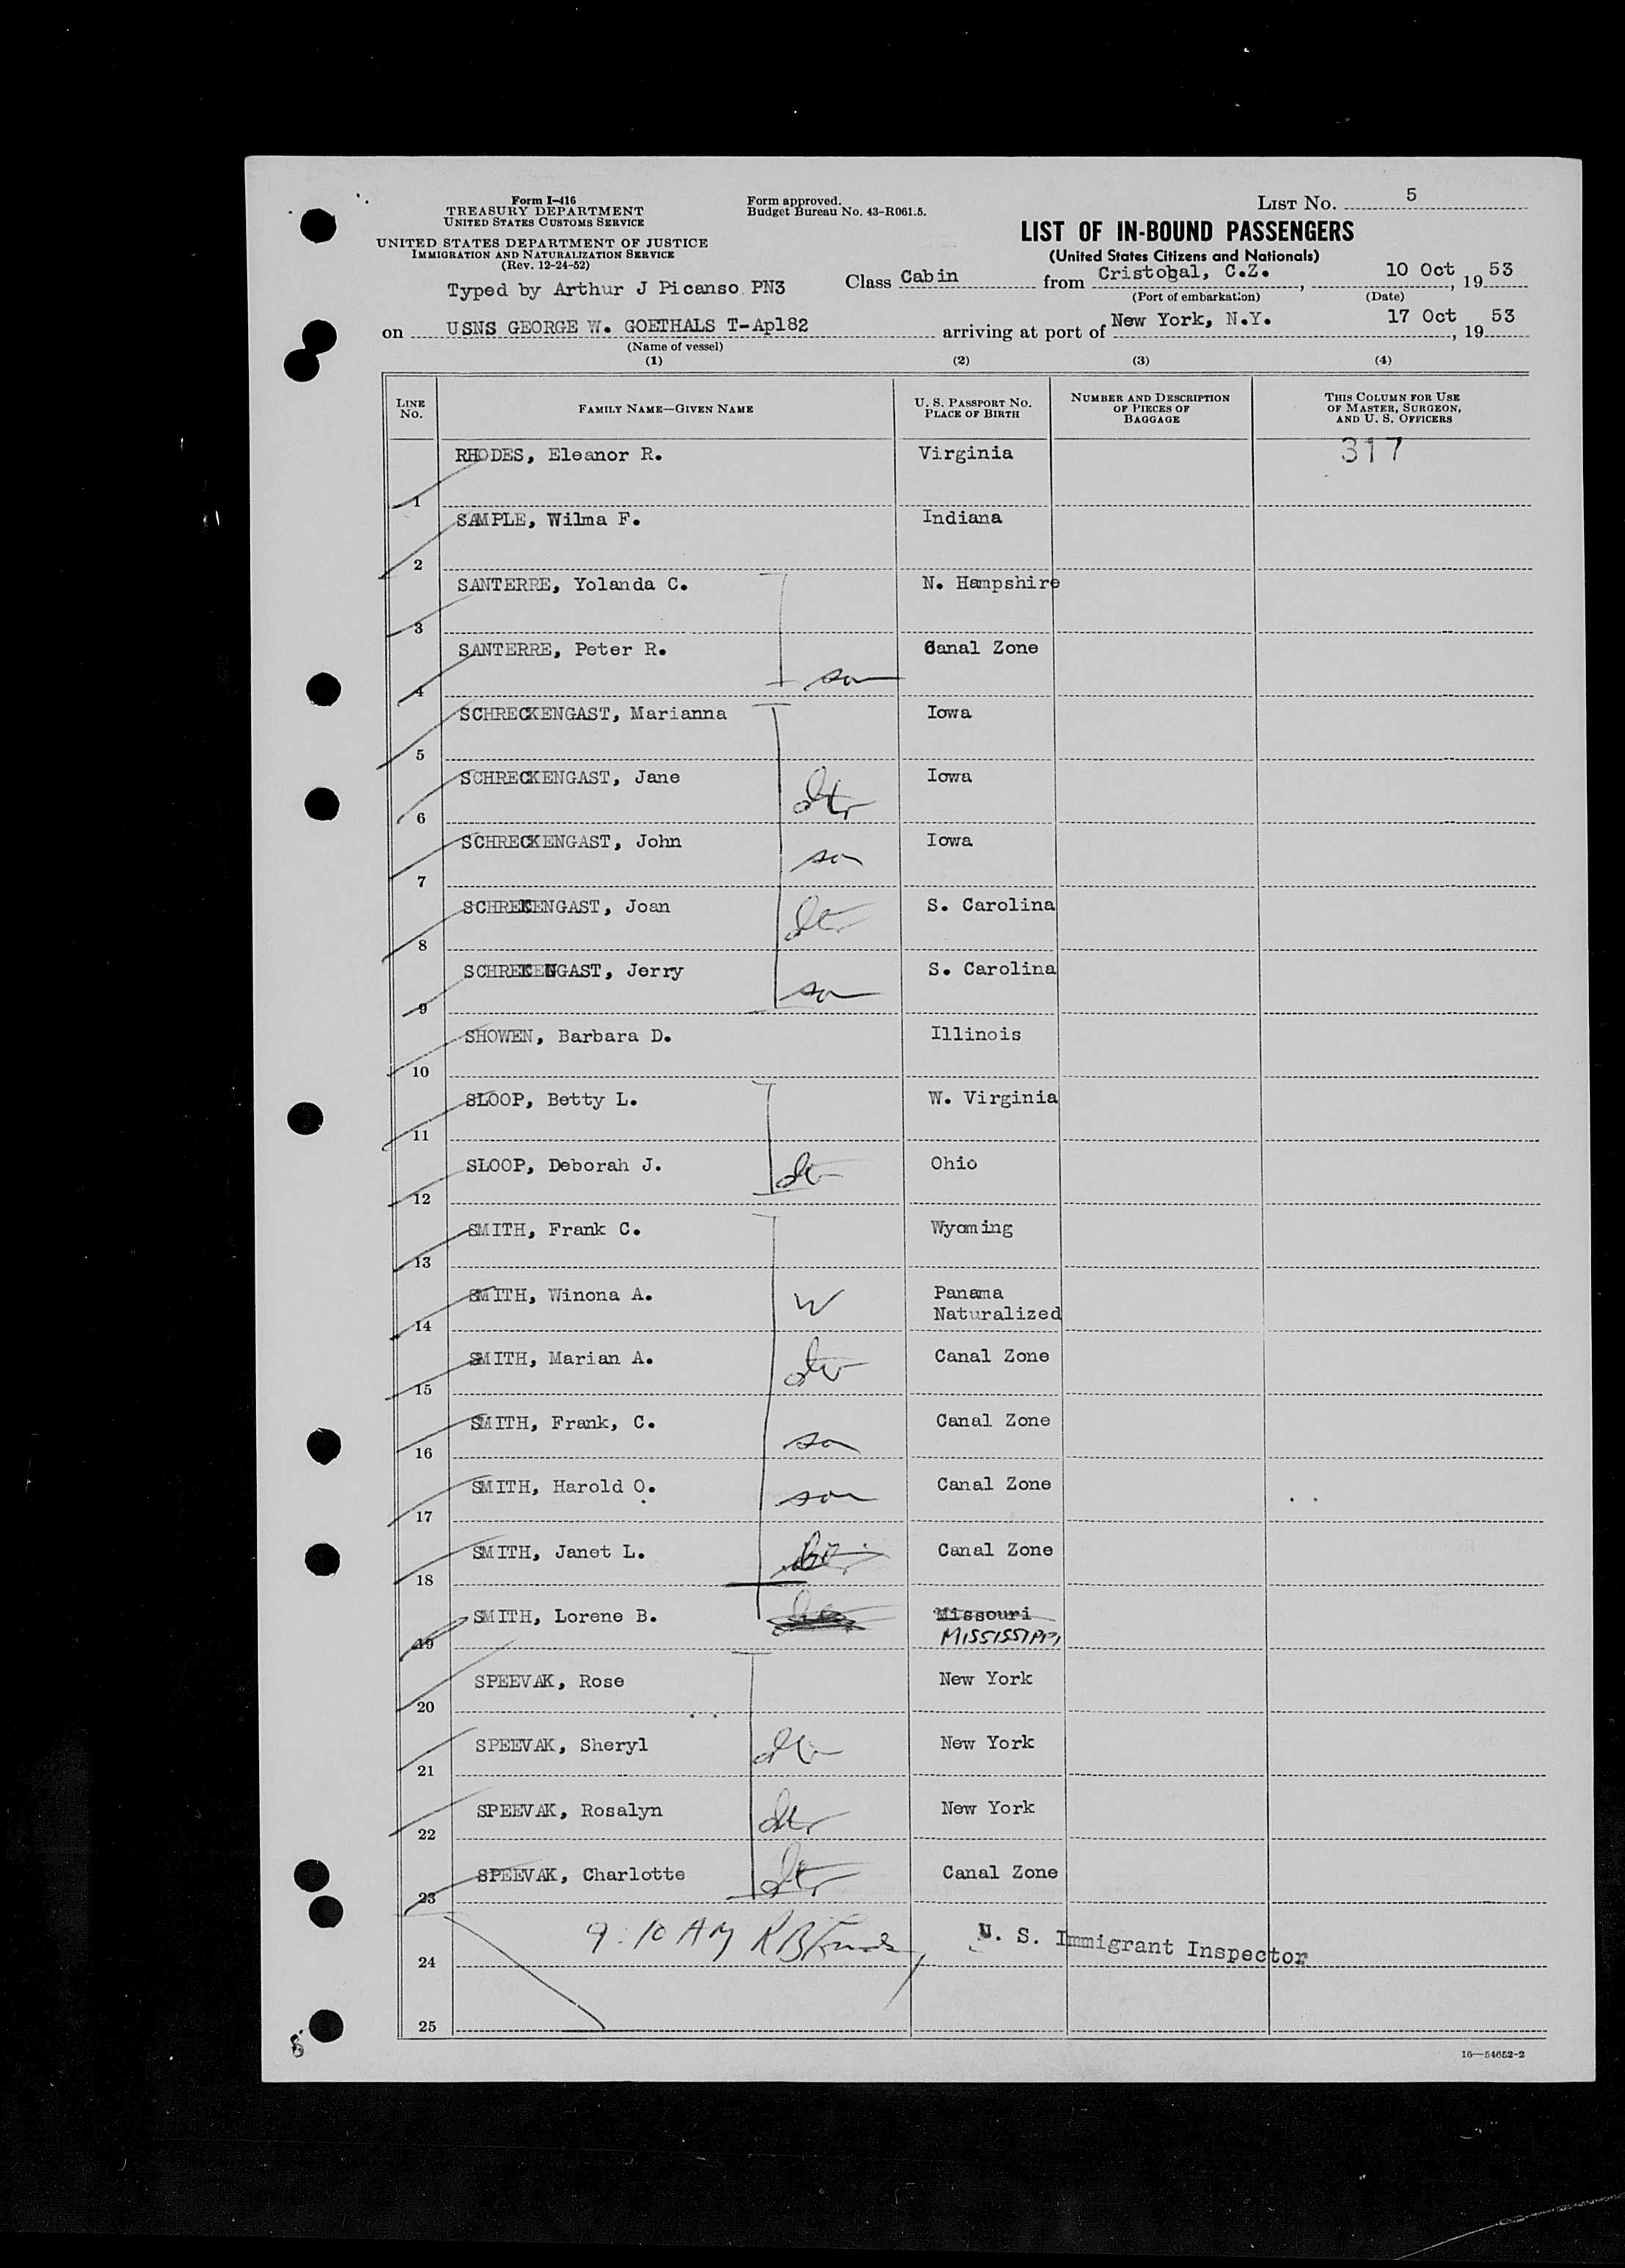 Form I-416
TREASURY DEPARTMENT
UNITED STATES CUSTOMS SERVICE
UNITED STATES DEPARTMENT OF JUSTICE
IMMIGRATION AND NATURALIZATION SERVICE
(Rev. 12-24-52)
Form approved.
Budget Bureau No. 43-R061.5.
LIST NO. 5
LIST OF IN-BOUND PASSENGERS
(United States Citizens and Nationals)
Typed by Arthur J Picanso PN3
Class Cabin from Cristobal, C.Z., 10 Oct, 1953
(Port of embarkation) (Date)
on USNS GEORGE W. GOETHALS T-Ap182 arriving at port of New York, N.Y. 17 Oct, 1953
(Name of vessel)
(1) (2) (3) (4)
LINE NO. FAMILY NAME—GIVEN NAME U. S. PASSPORT NO. PLACE OF BIRTH NUMBER AND DESCRIPTION OF PIECES OF BAGGAGE THIS COLUMN FOR USE OF MASTER, SURGEON, AND U. S. OFFICERS
1 RHODES, Eleanor R. Virginia 317
2 SAMPLE, Wilma F. Indiana
3 SANTERRE, Yolanda C. N. Hampshire
4 SANTERRE, Peter R. son Canal Zone
5 SCHRECKENGAST, Marianna Iowa
6 SCHRECKENGAST, Jane dtr Iowa
7 SCHRECKENGAST, John son Iowa
8 SCHREKENGAST, Joan dtr S. Carolina
9 SCHREKENGAST, Jerry son S. Carolina
10 SHOWEN, Barbara D. Illinois
11 SLOOP, Betty L. W. Virginia
12 SLOOP, Deborah J. dtr Ohio
13 SMITH, Frank C. Wyoming
14 SMITH, Winona A. W Panama
Naturalized
15 SMITH, Marian A. dtr Canal Zone
16 SMITH, Frank, C. son Canal Zone
17 SMITH, Harold O. son Canal Zone
18 SMITH, Janet L. Canal Zone
19 SMITH, Lorene B. Missouri
MISSISSIPPI
20 SPEEVAK, Rose New York
21 SPEEVAK, Sheryl dtr New York
22 SPEEVAK, Rosalyn dtr New York
23 SPEEVAK, Charlotte dtr Canal Zone
24 9:10 AM U. S. Immigrant Inspector
25
16—54652-2